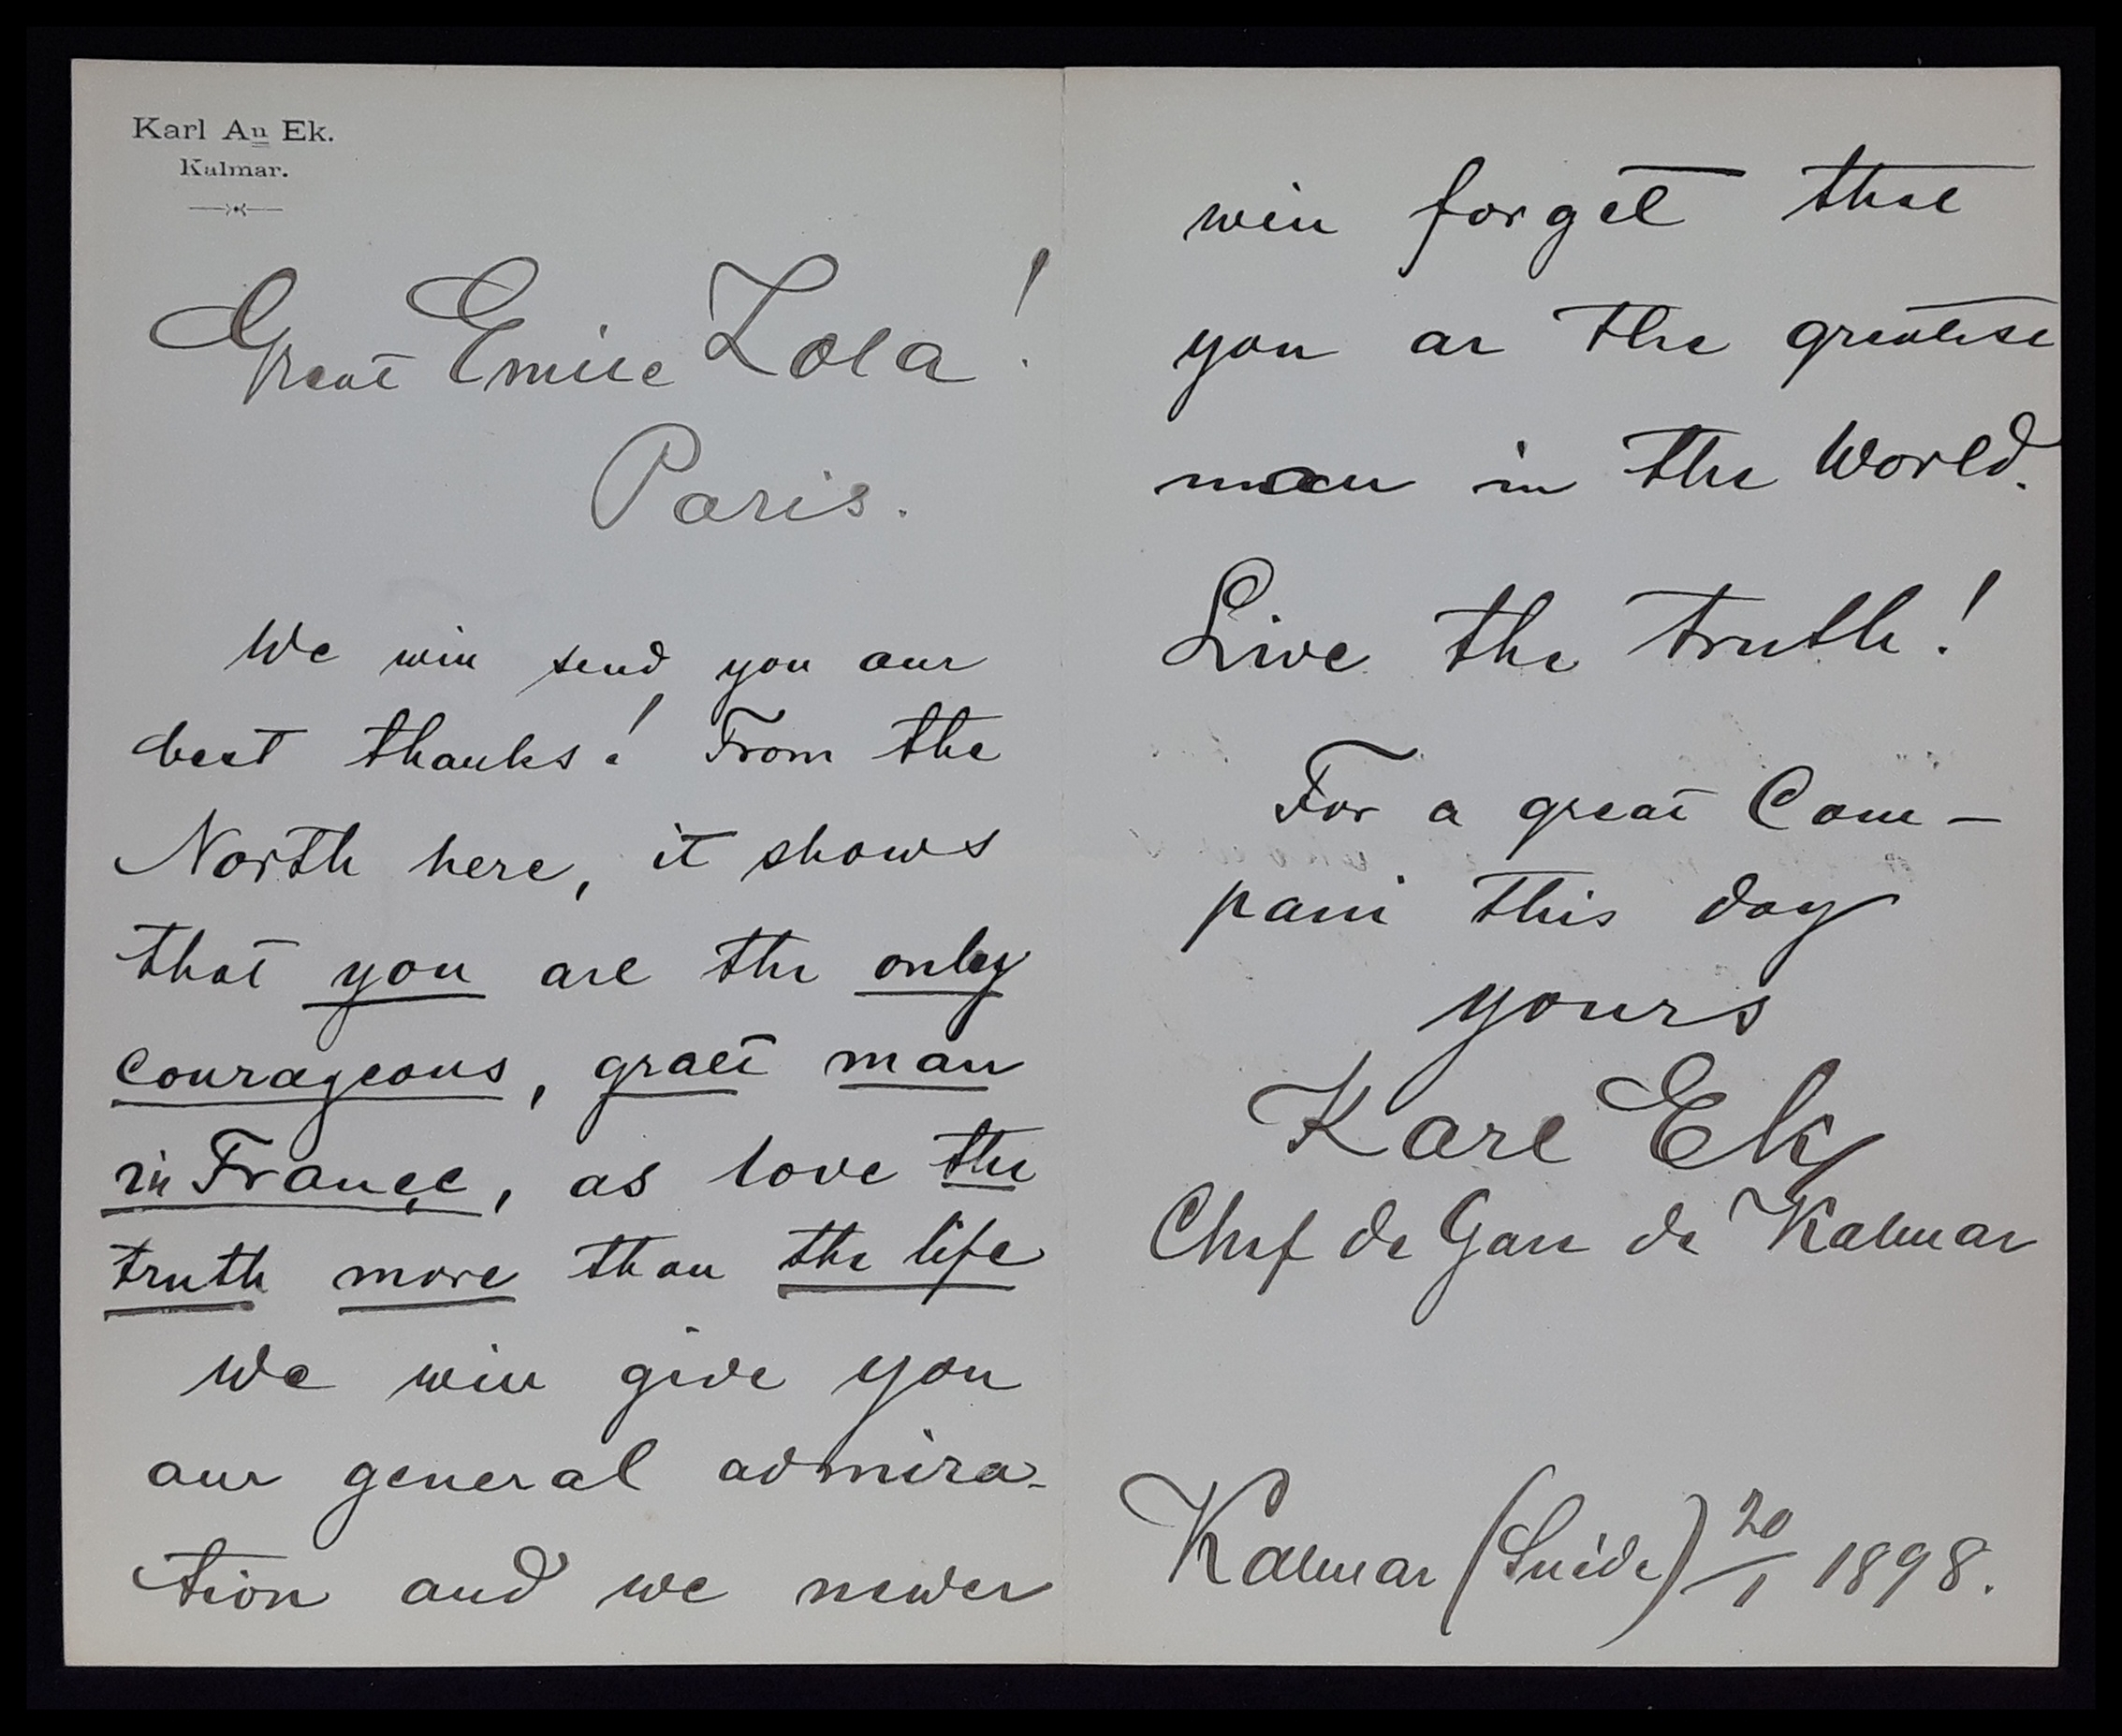 Karl An Ek.
Kalmar.
Great Emile Zola!
Paris.
We will send you our
best thanks! From the
North here, it shows
that you are the only
courageous, graet man
in France, as love the
truth more than the life
We will give you
our general admira-
tion and we newer
will forget that
you ar the greatest
man in the World.
Live the truth!
For a great Com-
pani this day
yours
Karl Ek
Chef de Gare de Kalmar
Kalmar (Suède) 20/1 1898.